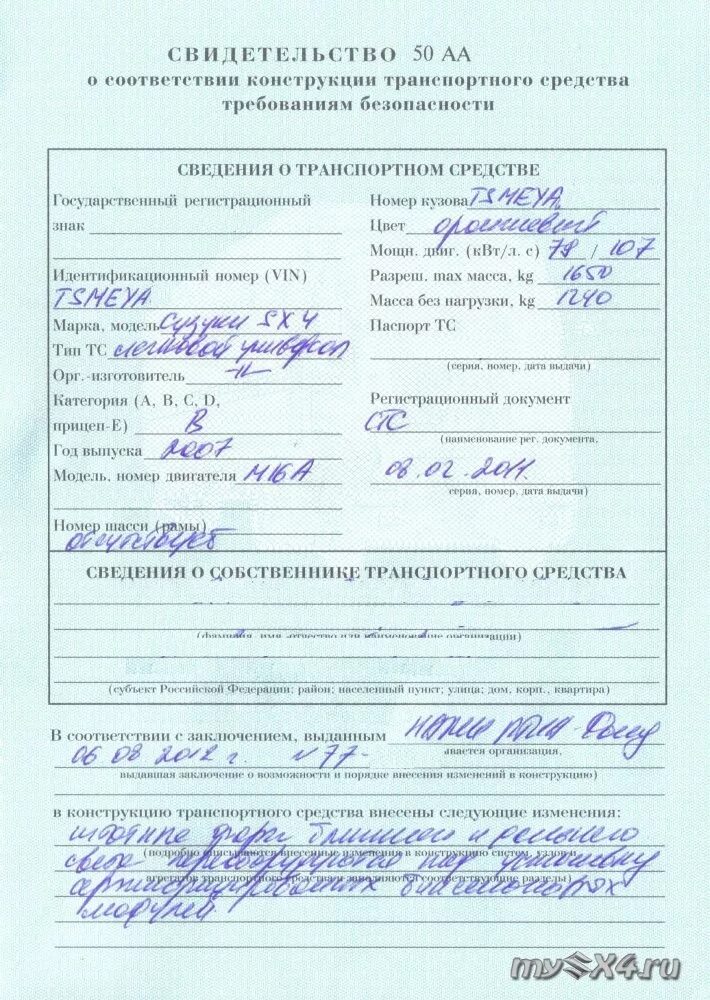 СВИДЕТЕЛЬСТВО 50 АА
о соответствии конструкции транспортного средства
требованиям безопасности
СВЕДЕНИЯ О ТРАНСПОРТНОМ СРЕДСТВЕ
Государственный регистрационный
знак
Идентификационный номер (VIN)
TSMEYA
Марка, модель Сузуки SX4
Тип ТС легковой универсал
Орг.-изготовитель
Категория (A, B, C, D,
прицеп-E) B
Год выпуска 2007
Модель, номер двигателя M16A
Номер шасси (рамы)
отсутствует
Номер кузова TSMEYA
Цвет оранжевый
Мощн. двиг. (кВт/л. с) 79 / 107
Разреш. max масса, kg 1650
Масса без нагрузки, kg 1240
Паспорт ТС
(серия, номер, дата выдачи)
Регистрационный документ
СТС
(наименование рег. документа,
08.02.2011.
серия, номер, дата выдачи)
СВЕДЕНИЯ О СОБСТВЕННИКЕ ТРАНСПОРТНОГО СРЕДСТВА
(фамилия, имя, отчество или наименование организации)
(субъект Российской Федерации; район; населенный пункт; улица; дом, корп., квартира)
В соответствии с заключением, выданным
06 08 2012 г. N 77-
вается организация,
выдавшая заключение о возможности и порядке внесения изменений в конструкцию)
в конструкцию транспортного средства внесены следующие изменения:
штатные фары ближнего и дальнего
(подробно описываются внесенные изменения в конструкцию систем, узлов и
света переоборудованы под установку
агрегатов транспортного средства и заполняются соответствующие разделы)
биксеноновых
модулей.
mySX4.ru